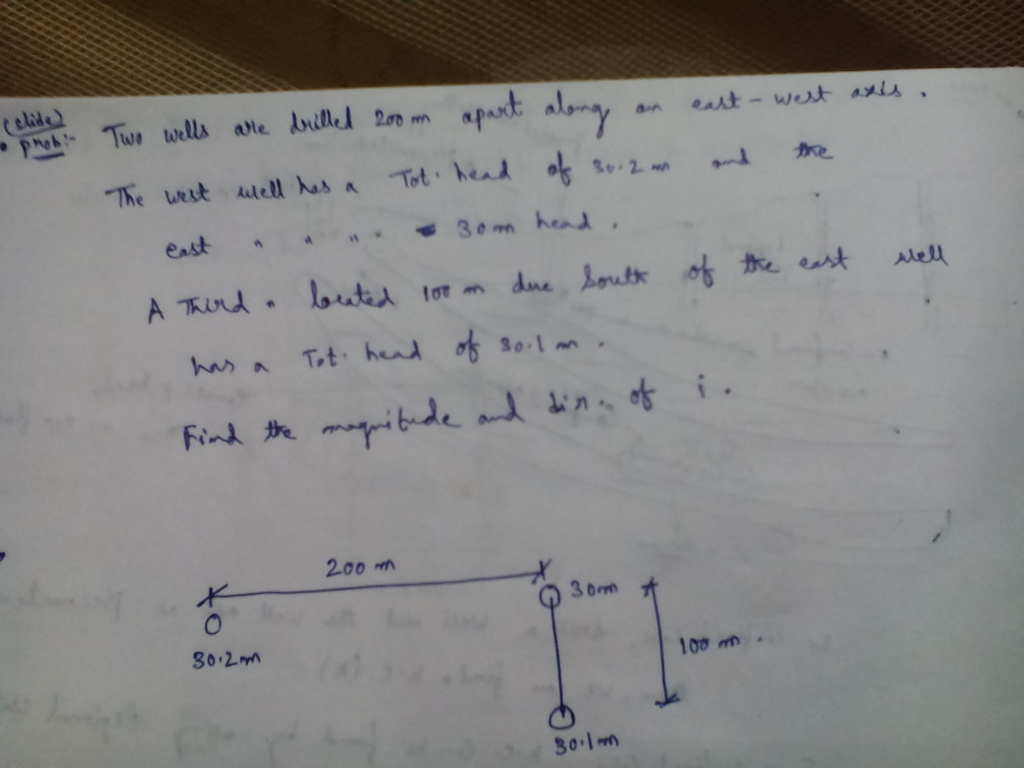 (slide)
• prob:- Two wells are drilled 200 m apart along an east-west axis.
The west well has a Tot. head of 30.2 m and the
east " " " " 30 m head.
A Third " located 100 m due South of the east well
has a Tot. head of 30.1 m.
Find the magnitude and dirn. of i.
200 m
30m
30.2m
100 m.
30.1m